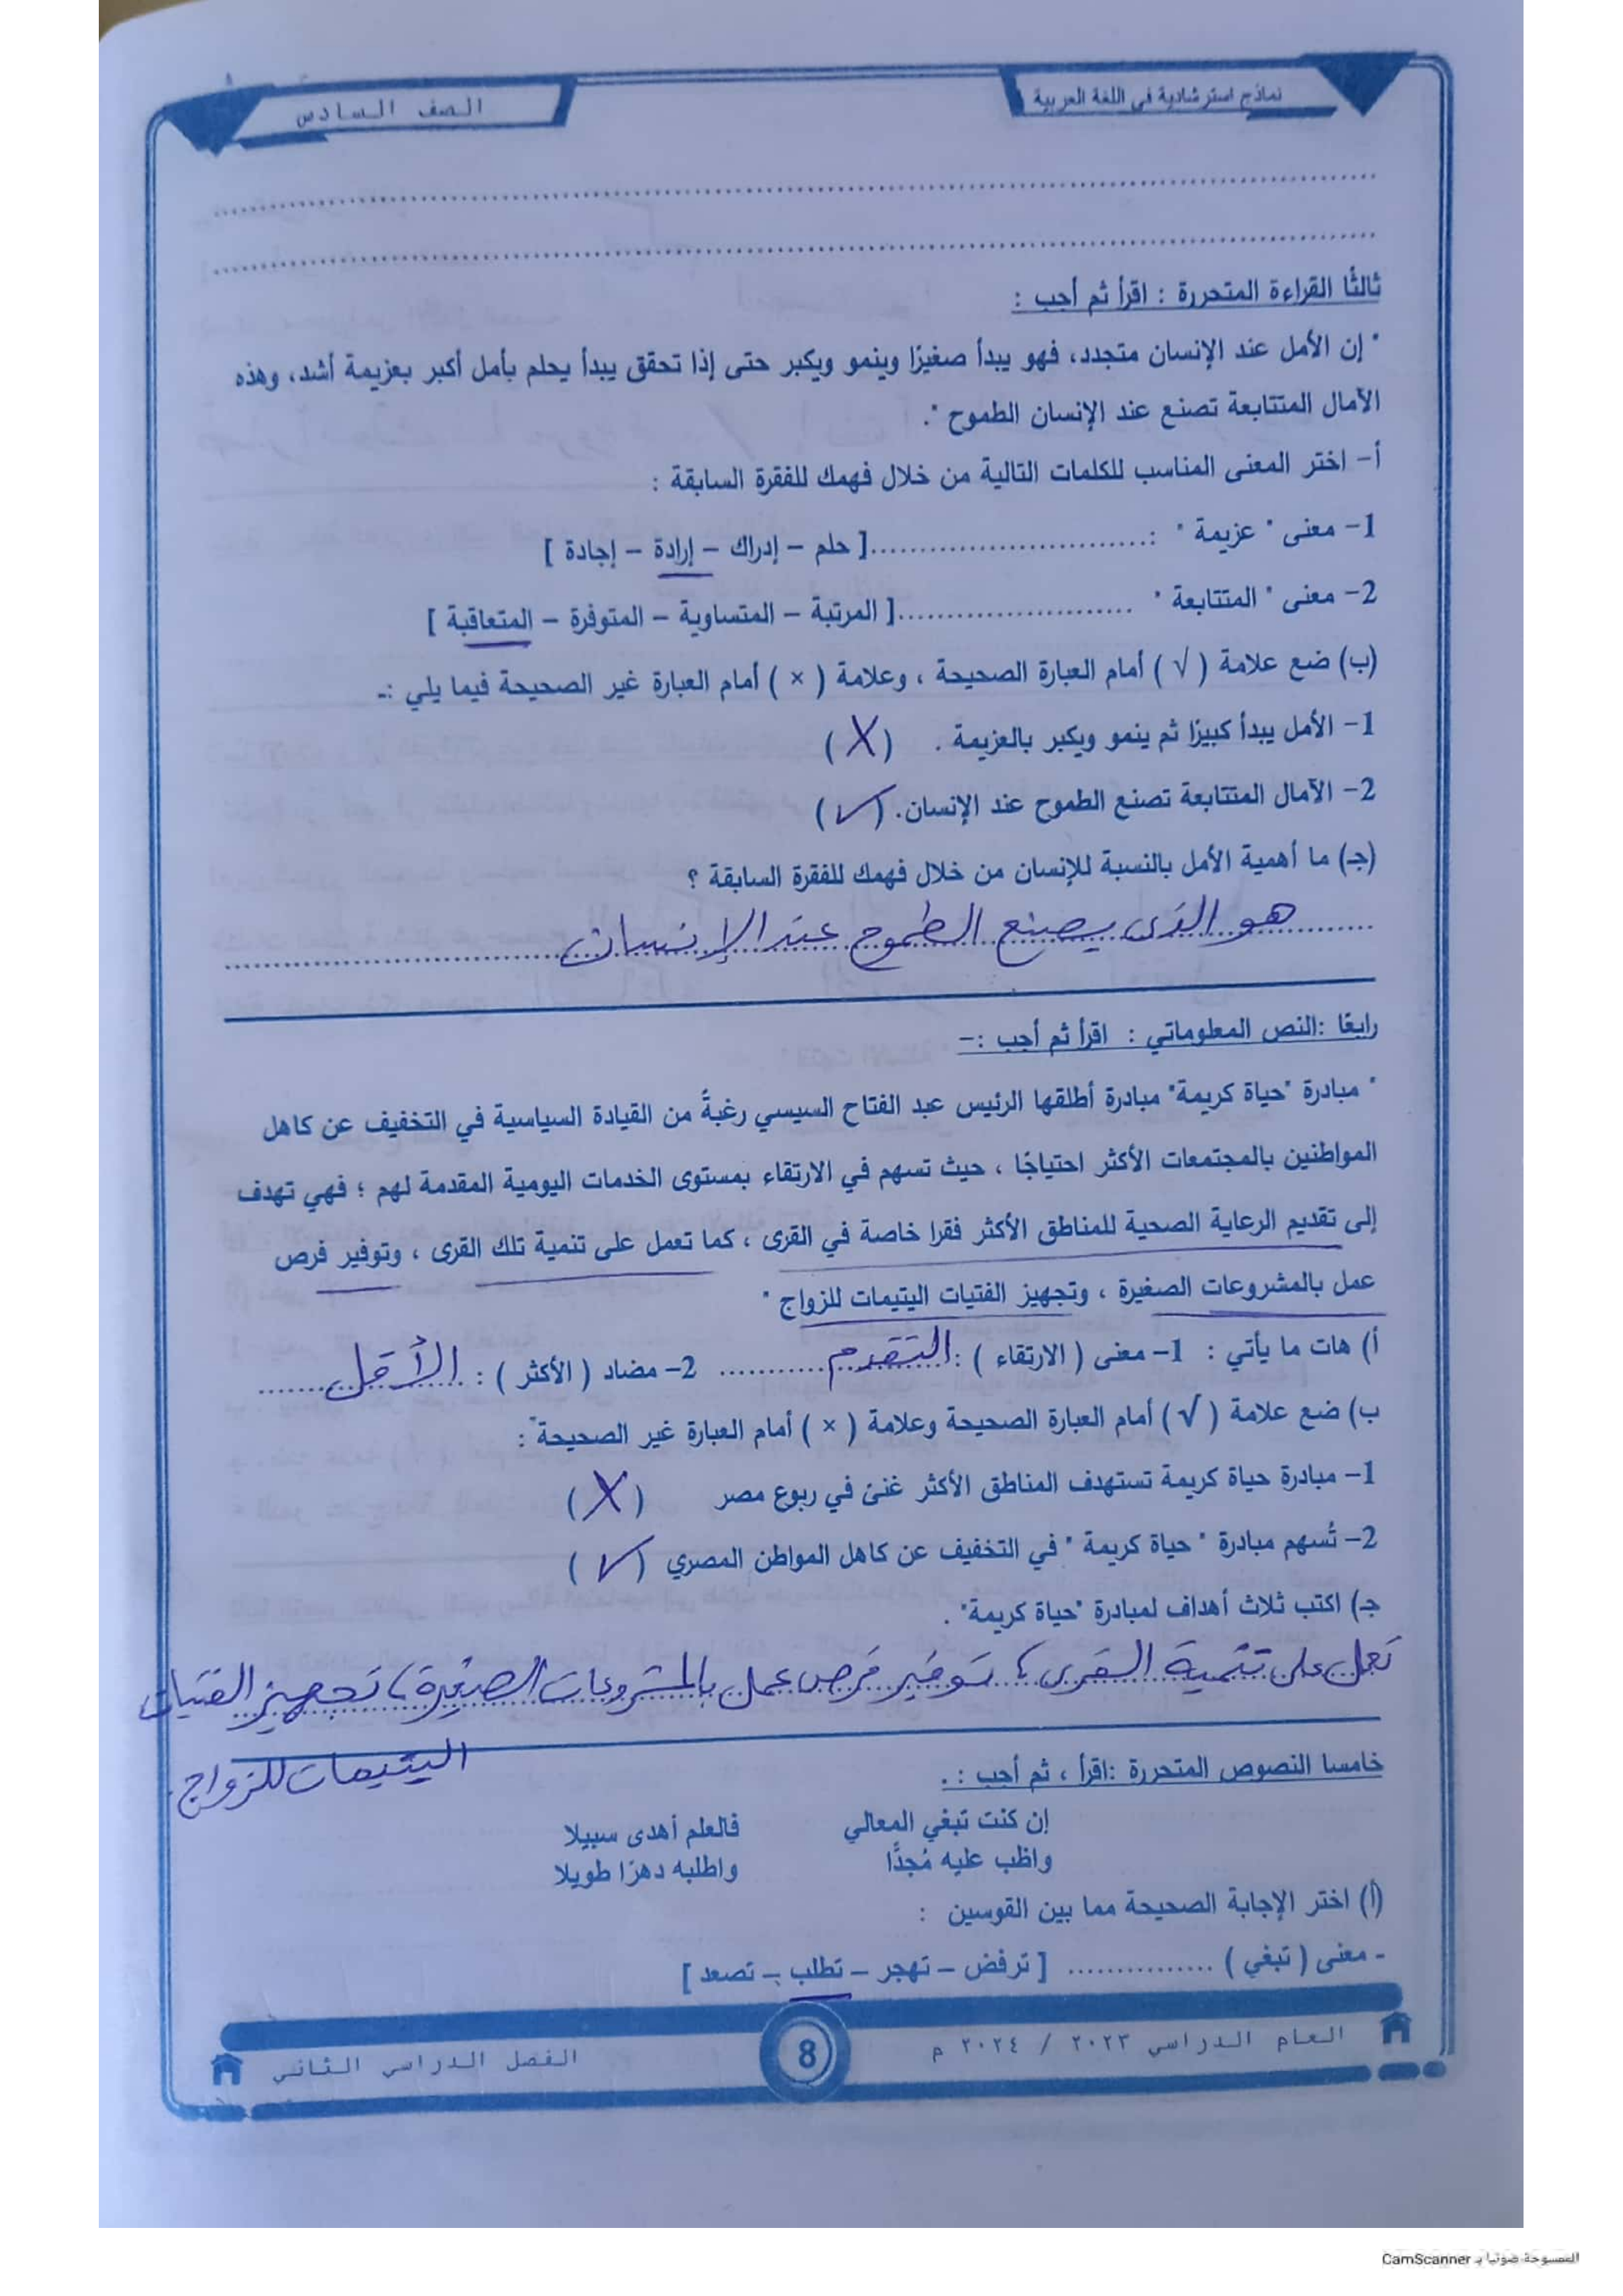 نماذج استرشادية في اللغة العربية
الصف السادس
ثالثًا القراءة المتحررة : اقرأ ثم أجب :
" إن الأمل عند الإنسان متجدد، فهو يبدأ صغيرًا وينمو ويكبر حتى إذا تحقق يبدأ يحلم بأمل أكبر بعزيمة أشد، وهذه
الآمال المتتابعة تصنع عند الإنسان الطموح ".
أ- اختر المعنى المناسب للكلمات التالية من خلال فهمك للفقرة السابقة :
1- معنى " عزيمة " :............................[ حلم – إدراك – إرادة – إجادة ]
2- معنى " المتتابعة " ........................[ المرتبة – المتساوية – المتوفرة – المتعاقبة ]
(ب) ضع علامة ( √ ) أمام العبارة الصحيحة ، وعلامة ( × ) أمام العبارة غير الصحيحة فيما يلي :-
1- الأمل يبدأ كبيرًا ثم ينمو ويكبر بالعزيمة . ( X )
2- الآمال المتتابعة تصنع الطموح عند الإنسان. ( ✓ )
(جـ) ما أهمية الأمل بالنسبة للإنسان من خلال فهمك للفقرة السابقة ؟
هو الذى يصنع الطموح عند الإنسان
رابعًا :النص المعلوماتي : اقرأ ثم أجب :-
" مبادرة "حياة كريمة" مبادرة أطلقها الرئيس عبد الفتاح السيسي رغبةً من القيادة السياسية في التخفيف عن كاهل
المواطنين بالمجتمعات الأكثر احتياجًا ، حيث تسهم في الارتقاء بمستوى الخدمات اليومية المقدمة لهم ؛ فهي تهدف
إلى تقديم الرعاية الصحية للمناطق الأكثر فقرا خاصة في القرى ، كما تعمل على تنمية تلك القرى ، وتوفير فرص
عمل بالمشروعات الصغيرة ، وتجهيز الفتيات اليتيمات للزواج "
أ) هات ما يأتي : 1- معنى ( الارتقاء ) : التقدم ........... 2- مضاد ( الأكثر ) : الأقل
ب) ضع علامة ( √ ) أمام العبارة الصحيحة وعلامة ( × ) أمام العبارة غير الصحيحة" :
1- مبادرة حياة كريمة تستهدف المناطق الأكثر غنىً في ربوع مصر ( X )
2- تُسهم مبادرة " حياة كريمة " في التخفيف عن كاهل المواطن المصري ( ✓ )
جـ) اكتب ثلاث أهداف لمبادرة "حياة كريمة" .
تعمل على تنمية القرى ، توفير فرص عمل بالمشروعات الصغيرة ، تجهيز الفتيات
اليتيمات للزواج.
خامسا النصوص المتحررة :اقرأ ، ثم أجب : .
إن كنت تبغي المعالي فالعلم أهدى سبيلا
واظب عليه مُجدًّا واطلبه دهرًا طويلا
(أ) اختر الإجابة الصحيحة مما بين القوسين :
- معنى ( تبغي ) ............... [ ترفض – تهجر – تطلب – تصعد ]
العام الدراسي ٢٠٢٣ / ٢٠٢٤ م
8
الفصل الدراسي الثاني
الممسوحة ضوئيا بـ CamScanner